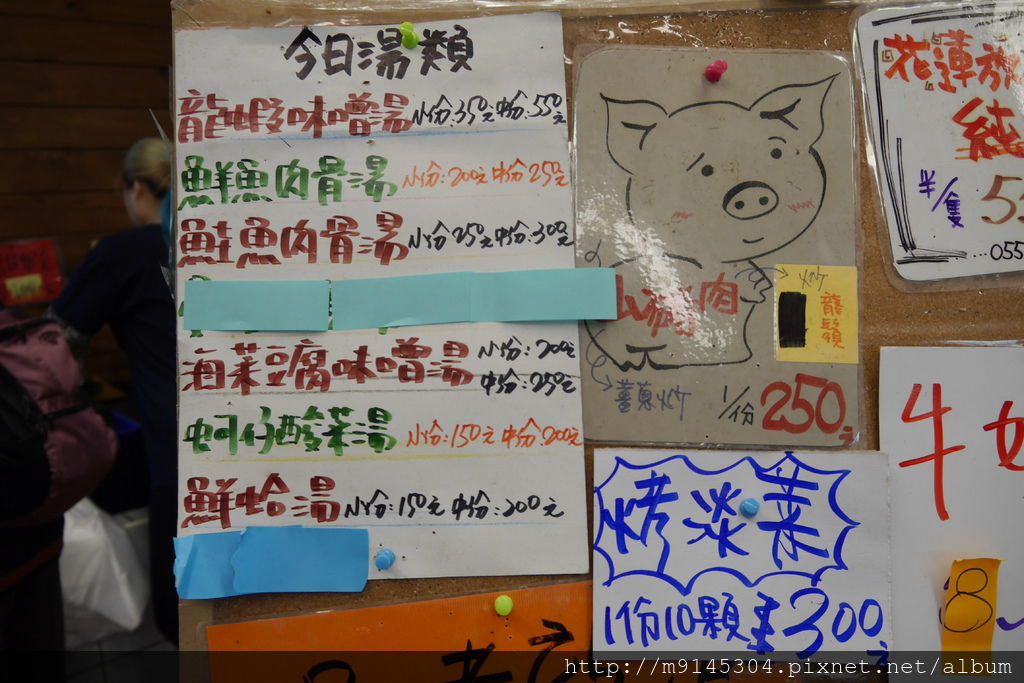 今日湯類
龍蝦味噌湯 小份:350元 中份:550元
鮮魚肉骨湯 小份:200元 中份250元
鮭魚肉骨湯 小份250元 中份:300元
海菜豆腐味噌湯 小份:200元
中份:250元
蚵仔酸菜湯 小份:150元 中份:200元
鮮蛤湯 小份:150元 中份:200元
山豬肉
炒
龍鬚
薑蔥炒
1/份250元
花蓮放
純
半/隻
055
烤淡菜
1份10顆 300元
牛
8
http://m9145304.pixnet.net/album